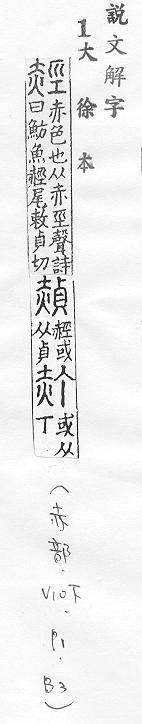 説文解字
1大徐本
䞓赤色也从赤巠聲詩
曰魴魚䞓尾敕貞切
赬䞓或
从貞
䞔或从
丁
(赤部・V10下・P1・B3)